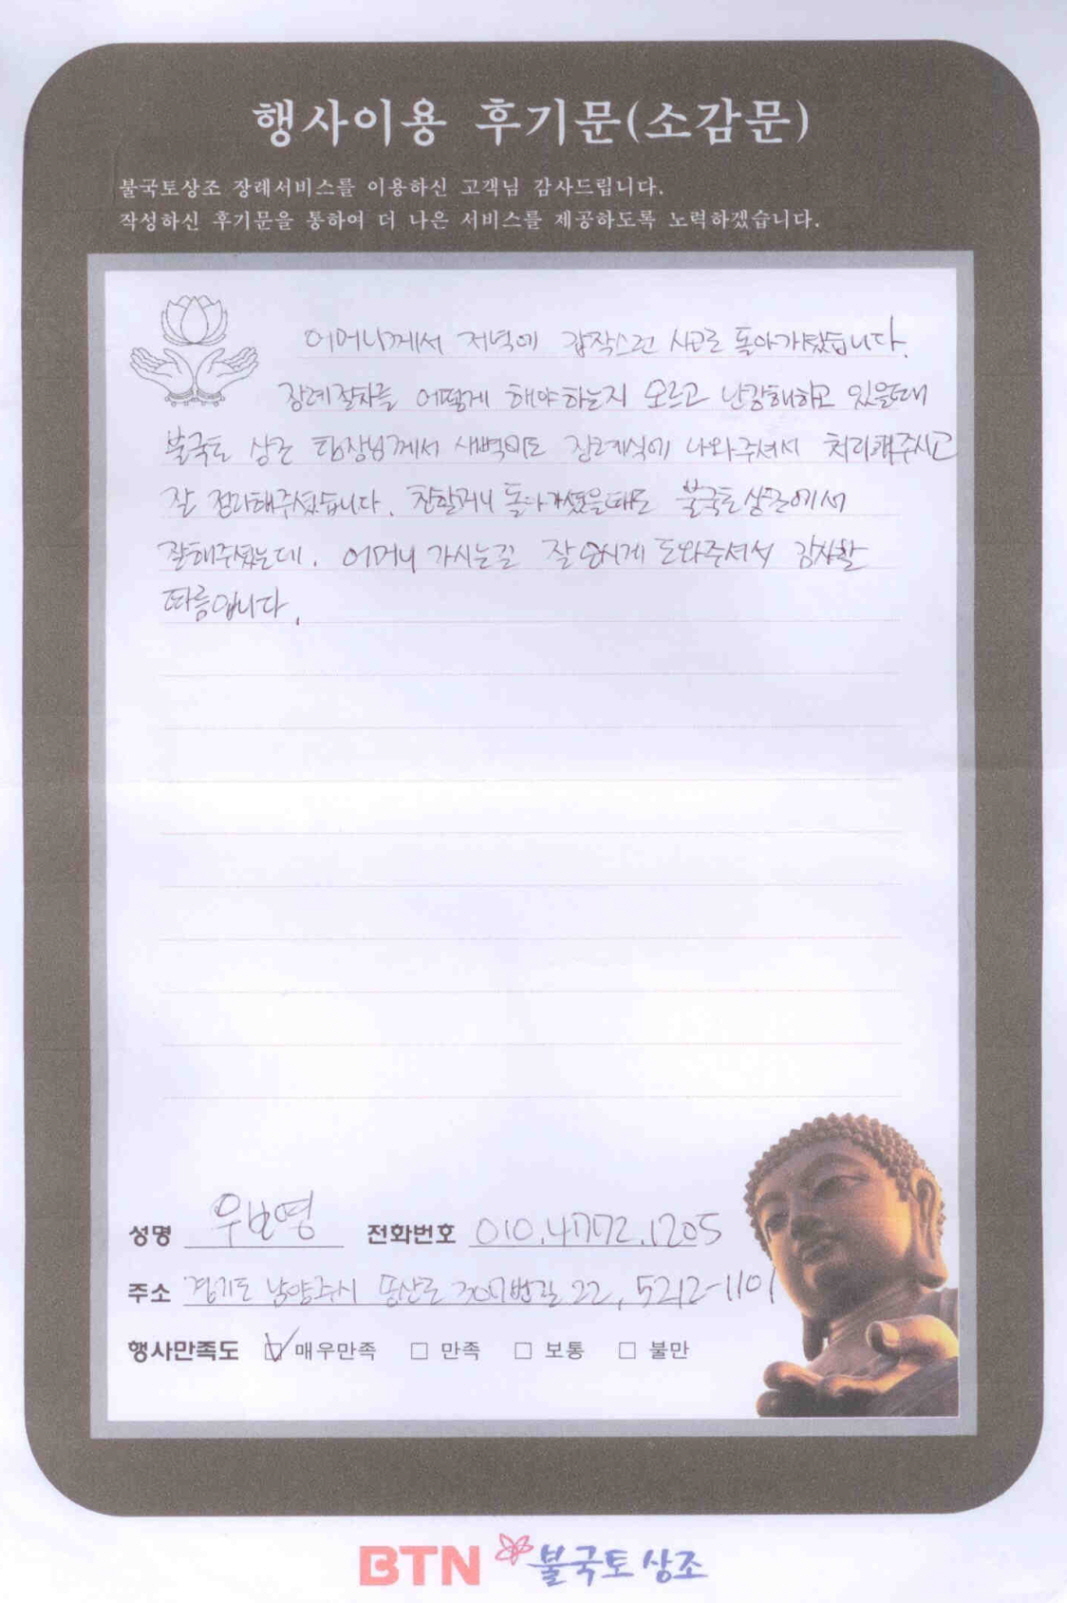 행사이용 후기문(소감문)
불국토상조 장례서비스를 이용하신 고객님 감사드립니다.
작성하신 후기문을 통하여 더 나은 서비스를 제공하도록 노력하겠습니다.
어머니께서 저녁에 갑작스런 사고로 돌아가셨습니다.
장례절차를 어떻게 해야하는지 모르고 난감해하고 있을때
불국토 상조 팀장님께서 새벽인데도 장례식에 나와주셔서 처리해주시고
잘 정리해주셨습니다. 친할머니 돌아가셨을때도 불국토상조에서
잘해주셨는데. 어머니 가시는길 잘 모시게 도와주셔서 감사할
따름입니다.
성명 우보영 전화번호 010.4772.1205
주소 경기도 남양주시 홍산로 307번길 22, 5212-1101
행사만족도 ☑ 매우만족 □ 만족 □ 보통 □ 불만
BTN 불국토 상조